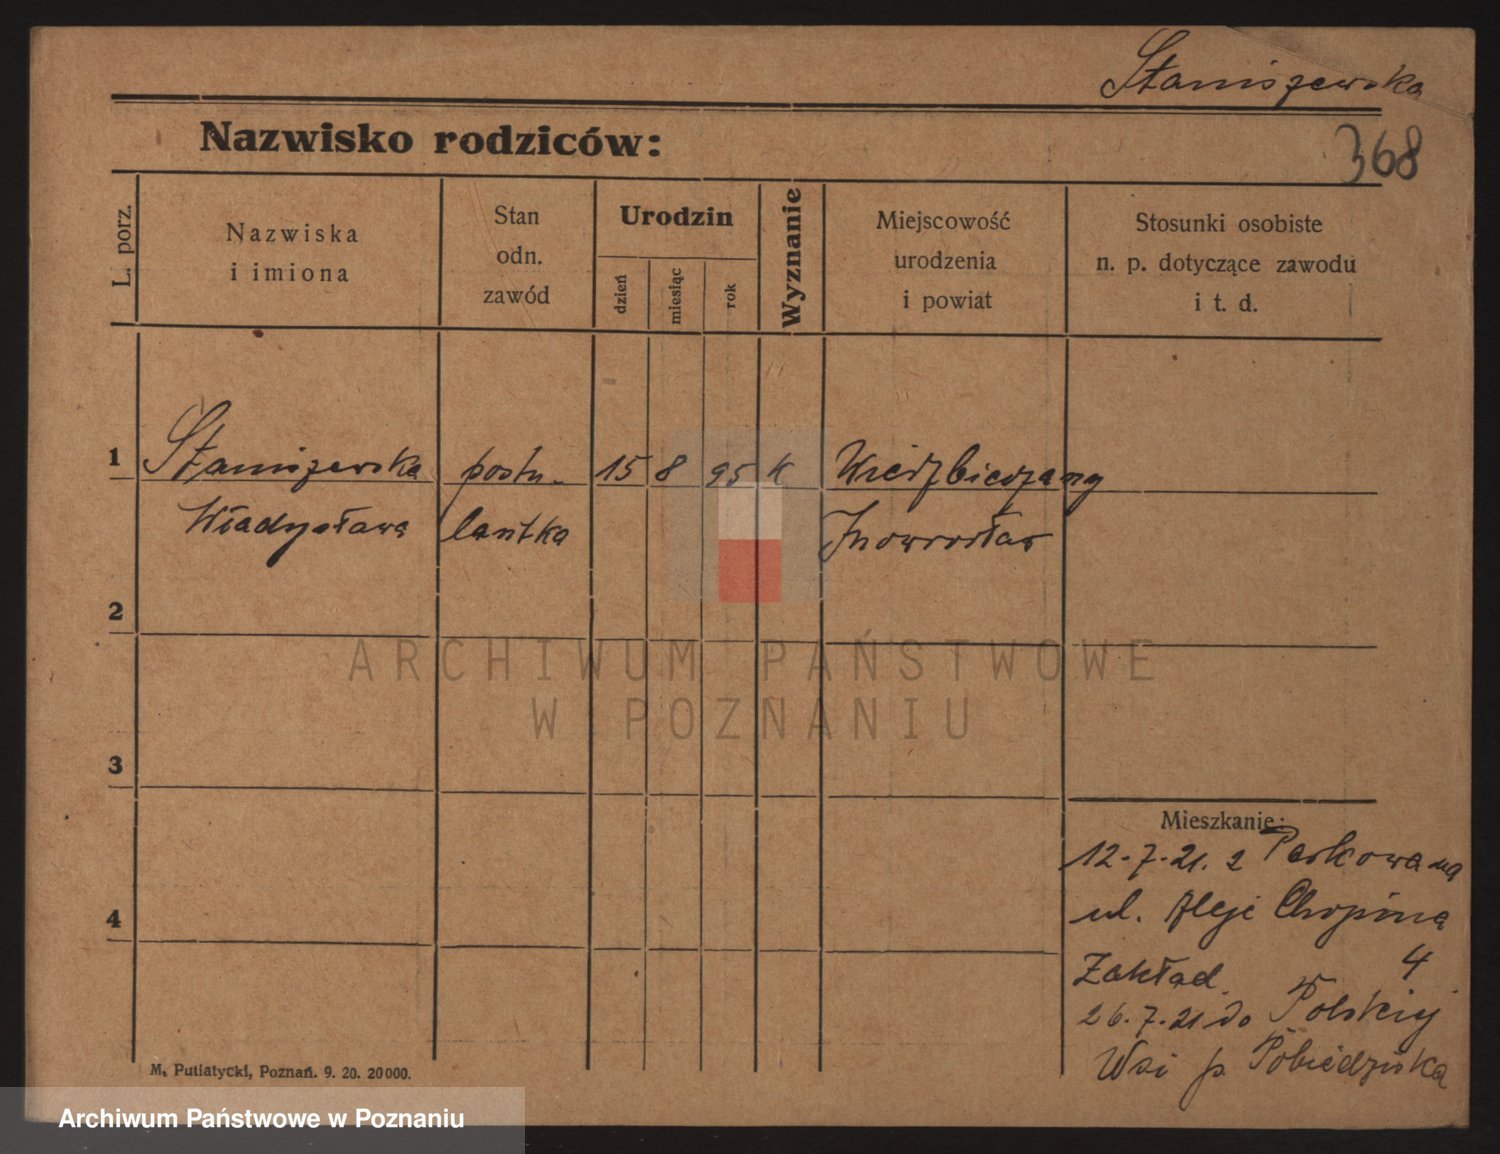 Staniszewska
Nazwisko rodziców:
368
L. porz.
Nazwiska
i imiona
Stan
odn.
zawód
Urodzin
dzień
miesiąc
rok
Wyznanie
Miejscowość
urodzenia
i powiat
Stosunki osobiste
n. p. dotyczące zawodu
i t. d.
1 Staniszewska postu- 15 8 95 K
Władysława lantka Inowrocław
2
3
4
Mieszkanie:
12.7.21. z Parkowa na
ul. Aleje Chopina
4
Zakład.
26.7.21 do Polskiej
Wsi p. Pobiedziska
M. Putiatycki, Poznań. 9. 20. 20000.
ARCHIWUM PAŃSTWOWE
W POZNANIU
Archiwum Państwowe w Poznaniu